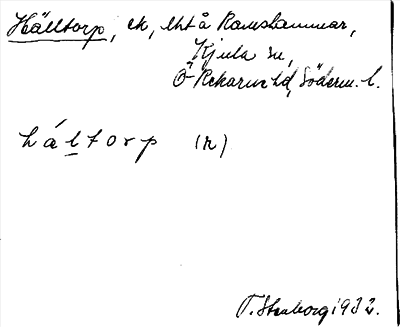 Hälltorp, ek, lht å Ramshammar,
Kjula sn,
Ö-Rekarne hd, Söderm. l.
há l t o r p (n)
T. Stenborg 1932.